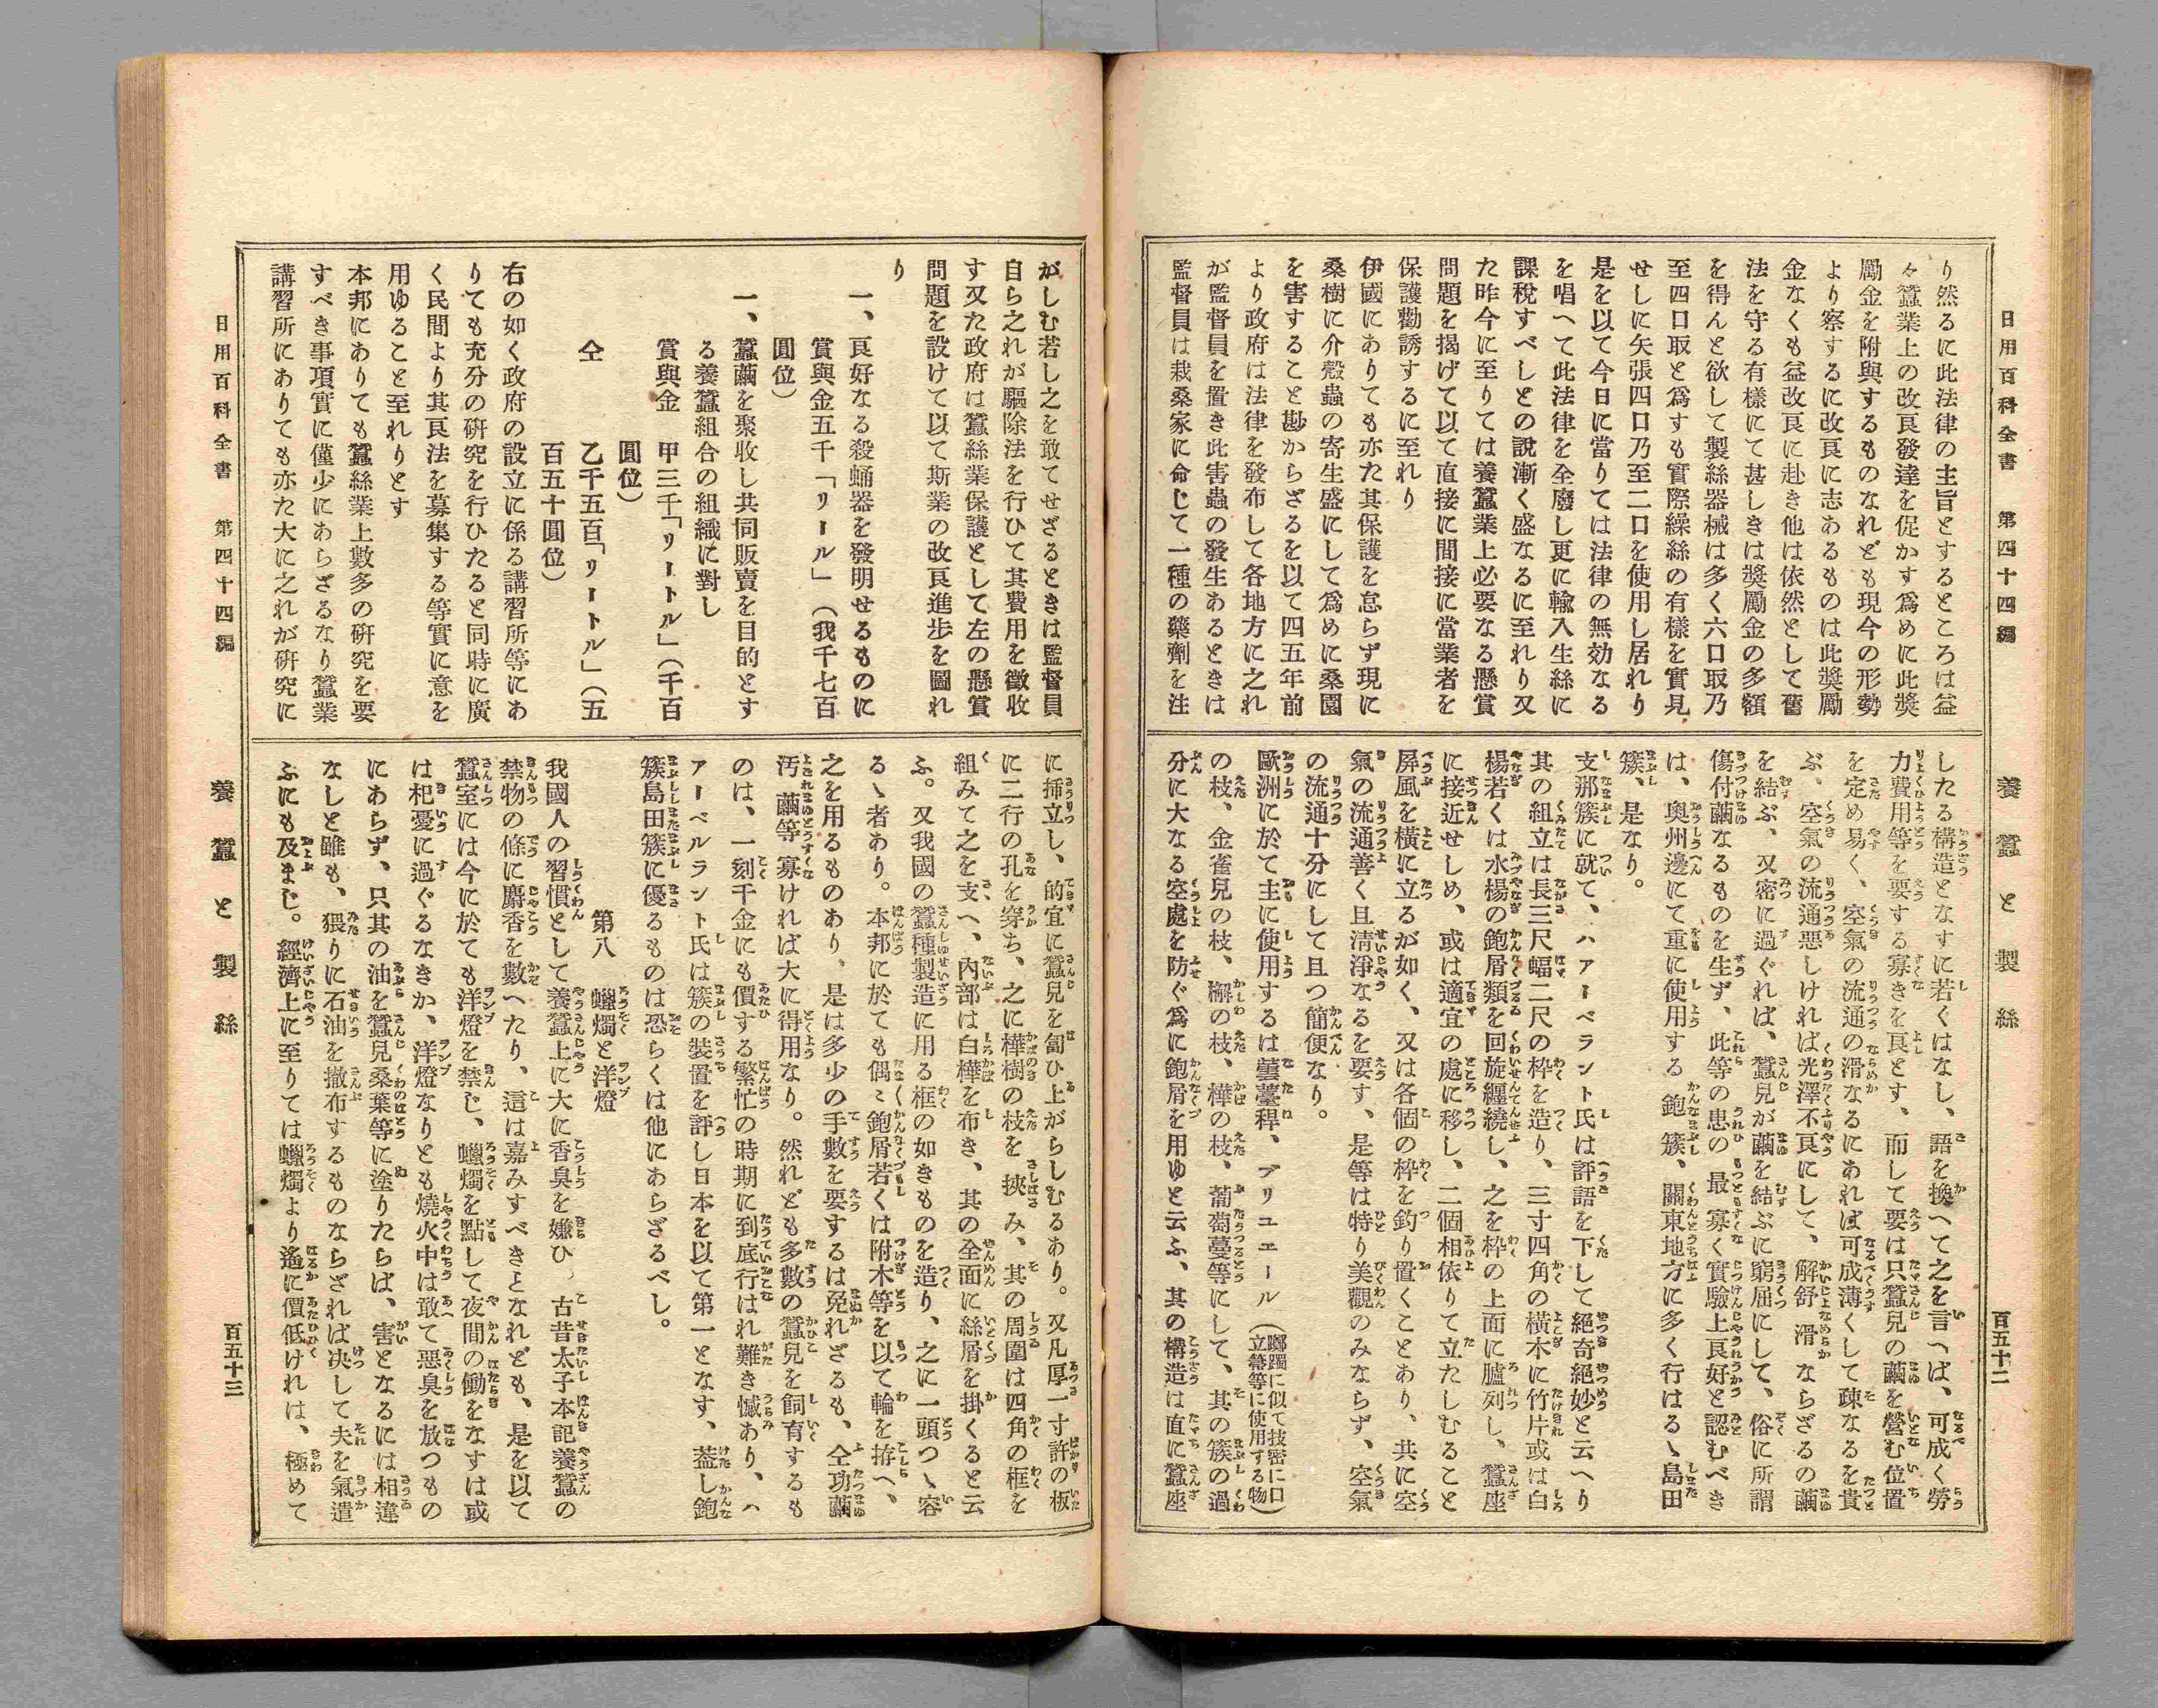 日用百科全書　第四十四編
養蠶と製絲
百五十二
り然るに此法律の主旨とするところは益
々蠶業上の改良發達を促かす爲めに此奬
勵金を附與するものなれども現今の形勢
より察するに改良に志あるものは此奬勵
金なくも益改良に赴き他は依然として舊
法を守る有樣にて甚しきは奬勵金の多額
を得んと欲して製絲器械は多く六口取乃
至四口取と爲すも實際繰絲の有樣を實見
せしに矢張四口乃至二口を使用し居れり
是を以て今日に當りては法律の無効なる
を唱へて此法律を全廢し更に輸入生絲に
課税すべしとの說漸く盛なるに至れり又
た昨今に至りては養蠶業上必要なる懸賞
問題を揭げて以て直接に間接に當業者を
保護勸誘するに至れり
伊國にありても亦た其保護を怠らず現に
桑樹に介殼蟲の寄生盛にして爲めに桑園
を害すること尠からざるを以て四五年前
より政府は法律を發布して各地方に之れ
が監督員を置き此害蟲の發生あるときは
監督員は栽桑家に命じて一種の藥劑を注
したる構造となすに若くはなし、語を換へて之を言へば、可成く勞
力費用等を要する寡きを良とす、而して要は只蠶兒の繭を營む位置
を定め易く、空氣の流通の滑なるにあれば可成薄くして疎なるを貴
ぶ。空氣の流通惡しければ光澤不良にして、解舒滑ならざるの繭
を結ぶ、又密に過ぐれば、蠶兒が繭を結ぶに窮屈にして、俗に所謂
傷付繭なるものを生ず、此等の患の最寡く實驗上良好と認むべき
は、奥州邊にて重に使用する鉋簇、關東地方に多く行はるゝ島田
簇、是なり。
支那簇に就て、ハアーベラント氏は評語を下して絕奇絕妙と云へり
其の組立は長三尺幅二尺の枠を造り、三寸四角の横木に竹片或は白
楊若くは水楊の鉋屑類を回旋纒繞し、之を枠の上面に臚列し、蠶座
に接近せしめ、或は適宜の處に移し、二個相依りて立たしむること
屏風を橫に立るが如く、又は各個の枠を釣り置くことあり、共に空
氣の流通善く且淸淨なるを要す、是等は特り美觀のみならず、空氣
の流通十分にして且つ簡便なり。
歐洲に於て主に使用するは蕓薹稈、ブリユエール（躑躅に似て技密に口立箒等に使用する物）
の枝、金雀兒の枝、檞の枝、樺の枝、葡萄蔓等にして、其の簇の過
分に大なる空處を防ぐ爲に鉋屑を用ゆと云ふ、其の構造は直に蠶座
がしむ若し之を敢てせざるときは監督員
自ら之れが驅除法を行ひて其費用を徵收
す又た政府は蠶絲業保護として左の懸賞
問題を設けて以て斯業の改良進步を圖れ
り
一、良好なる殺蛹器を發明せるものに
賞與金五千「リール」（我千七百
圓位）
一、蠶繭を聚收し共同販賣を目的とす
る養蠶組合の組織に對し
賞與金　甲三千「リートル」（千百
圓位）
仝　乙千五百「リートル」（五
百五十圓位）
右の如く政府の設立に係る講習所等にあ
りても充分の硏究を行ひたると同時に廣
く民間より其良法を募集する等實に意を
用ゆること至れりとす
本邦にありても蠶絲業上數多の硏究を要
すべき事項實に僅少にあらざるなり蠶業
講習所にありても亦た大に之れが硏究に
に揷立し、的宜に蠶兒を匍ひ上がらしむるあり。又凡厚一寸許の板
に二行の孔を穿ち、之に樺樹の枝を挾み、其の周圍は四角の框を
組みて之を支へ、內部は白樺を布き、其の全面に絲屑を掛くると云
ふ。又我國の蠶種製造に用る框の如きものを造り、之に一頭つゝ容
るゝ者あり。本邦に於ても偶々鉋屑若くは附木等を以て輪を拵へ、
之を用るものあり、是は多少の手數を要するは免れざるも、仝功繭
汚繭等寡ければ大に得用なり。然れども多數の蠶兒を飼育するも
のは、一刻千金にも價する繁忙の時期に到底行はれ難き憾あり、ハ
アーベルラント氏は簇の裝置を評し日本を以て第一となす、蓋し鉋
簇島田簇に優るものは恐らくは他にあらざるべし。
第八　蠟燭と洋燈
我國人の習慣として養蠶上に大に香臭を嫌ひ、古昔太子本記養蠶の
禁物の條に麝香を數へたり、這は嘉みすべきとなれども、是を以て
蠶室には今に於ても洋燈を禁じ、蠟燭を點して夜間の働をなすは或
は杞憂に過ぐるなきか、洋燈なりとも燒火中は敢て惡臭を放つもの
にあらず、只其の油を蠶兒桑葉等に塗りたらば、害となるには相違
なしと雖も、猥りに石油を撤布するものならざれば决して夫を氣遣
ふにも及まじ。經濟上に至りては蠟燭より遙に價低けれは、極めて
日用百科全書　第四十四編
養蠶と製絲
百五十三